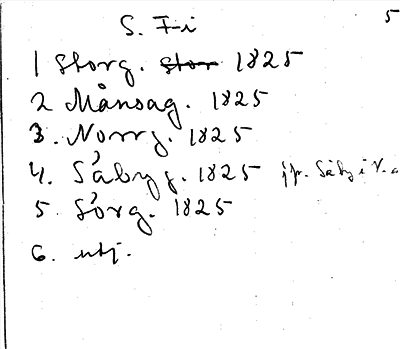 S. Fi 5
1 Storg. stor 1825
2 Månsag. 1825
3. Norrg. 1825
4. Såbyg. 1825 jfr. Såby i V.
5. Sörg. 1825
6. utj.